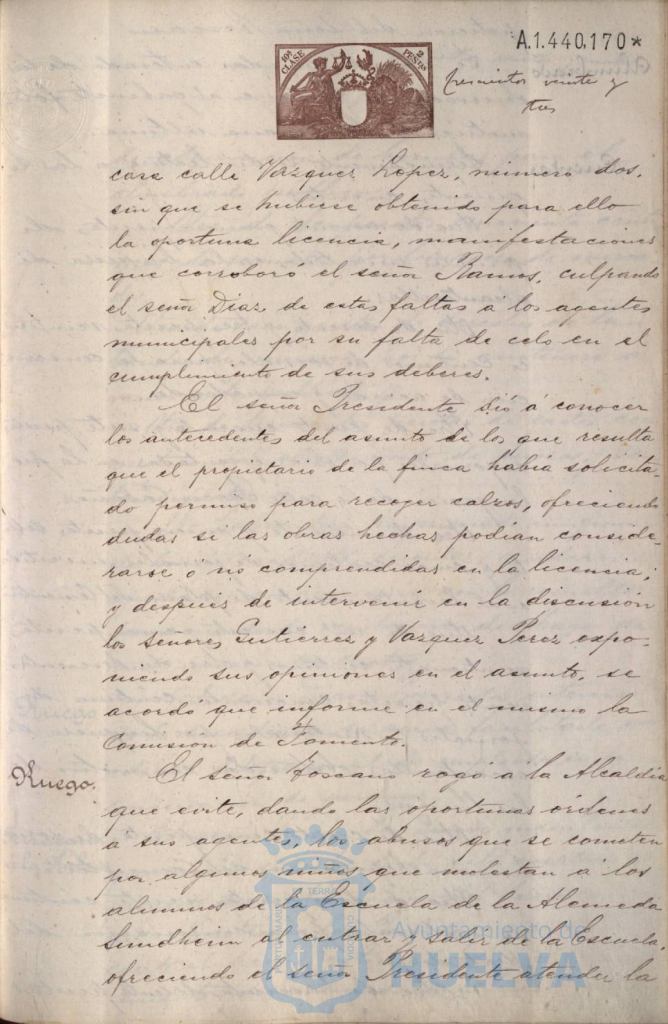 A.1.440.170*
10ª CLASE 2 PESTAS
trescientos veinte y
tres
casa calle Vazquez Lopez, número dos,
sin que se hubiese obtenido para ello
la oportuna licencia, manifestaciones
que corroboró el señor Ramos, culpando
el señor Diaz de estas faltas á los agentes
municipales por su falta de celo en el
cumplimiento de sus deberes.
El señor Presidente dió á conocer
los antecedentes del asunto de los que resulta
que el propietario de la finca había solicita-
do permiso para recoger calzos, ofreciendo
dudas si las obras hechas podían conside-
rarse ó nó comprendidas en la licencia;
y después de intervenir en la discusión
los señores Gutiérrez y Vazquez Perez expo-
niendo sus opiniones en el asunto, se
acordó que informe en el mismo la
Comisión de Fomento.
Ruego.
El señor Toscano rogó á la Alcaldía
que evite, dando las oportunas órdenes
a sus agentes, los abusos que se cometen
por algunos niños que molestan á los
alumnos de la Escuela de la Alameda
Sundheim al entrar y salir de la Escuela,
ofreciendo el señor Presidente atender la
Ayuntamiento de
HUELVA